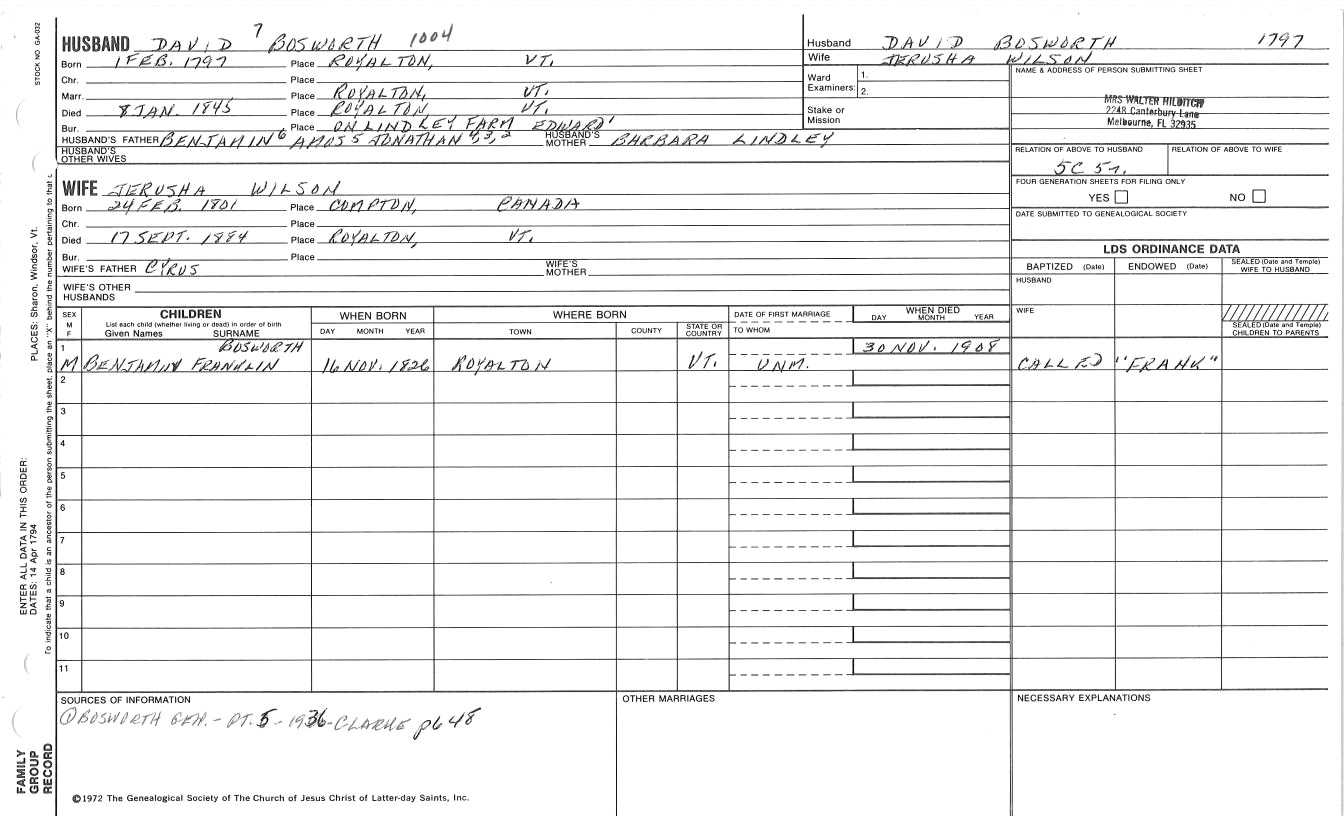 STOCK NO GA-032
HUSBAND DAVID 7 BOSWORTH 1004
Born 1 FEB. 1797 Place ROYALTON, VT.
Chr. Place
Marr. Place ROYALTON, VT.
Died 8 JAN. 1845 Place ROYALTON VT.
Bur. Place ON LINDLEY FARM EDWARD 1
HUSBAND'S FATHER BENJAMIN 6 AMOS 5 JONATHAN 4,3,2 HUSBAND'S MOTHER BARBARA LINDLEY
HUSBAND'S OTHER WIVES
Husband DAVID BOSWORTH 1797
Wife JERUSHA WILSON
Ward Examiners: 1.
2.
Stake or Mission
NAME & ADDRESS OF PERSON SUBMITTING SHEET
MRS WALTER HILDITCH
2248 Canterbury Lane
Melbourne, FL 32935
RELATION OF ABOVE TO HUSBAND RELATION OF ABOVE TO WIFE
5C 5r.
FOUR GENERATION SHEETS FOR FILING ONLY
YES NO
DATE SUBMITTED TO GENEALOGICAL SOCIETY
WIFE JERUSHA WILSON
Born 24 FEB. 1801 Place COMPTON, CANADA
Chr. Place
Died 17 SEPT. 1884 Place ROYALTON, VT.
Bur. Place
WIFE'S FATHER CYRUS WIFE'S MOTHER
WIFE'S OTHER HUSBANDS
LDS ORDINANCE DATA
BAPTIZED (Date) ENDOWED (Date) SEALED (Date and Temple) WIFE TO HUSBAND
HUSBAND
WIFE
SEALED (Date and Temple) CHILDREN TO PARENTS
SEX M F
CHILDREN
List each child (whether living or dead) in order of birth
Given Names SURNAME
WHEN BORN
DAY MONTH YEAR
WHERE BORN
TOWN COUNTY STATE OR COUNTRY
DATE OF FIRST MARRIAGE
TO WHOM
WHEN DIED
DAY MONTH YEAR
1 BOSWORTH 30 NOV. 1908
M BENJAMIN FRANKLIN 16 NOV. 1826 ROYALTON VT. UNM. CALLED "FRANK"
2
3
4
5
6
7
8
9
10
11
SOURCES OF INFORMATION
① BOSWORTH GEN. - PT. 5 - 1936 - CLARKE p648
OTHER MARRIAGES
NECESSARY EXPLANATIONS
©1972 The Genealogical Society of The Church of Jesus Christ of Latter-day Saints, Inc.
PLACES: Sharon, Windsor, Vt.
ENTER ALL DATA IN THIS ORDER:
DATES: 14 Apr 1794
To indicate that a child is an ancestor of the person submitting the sheet, place an "X" behind the number pertaining to that c
FAMILY
GROUP
RECORD